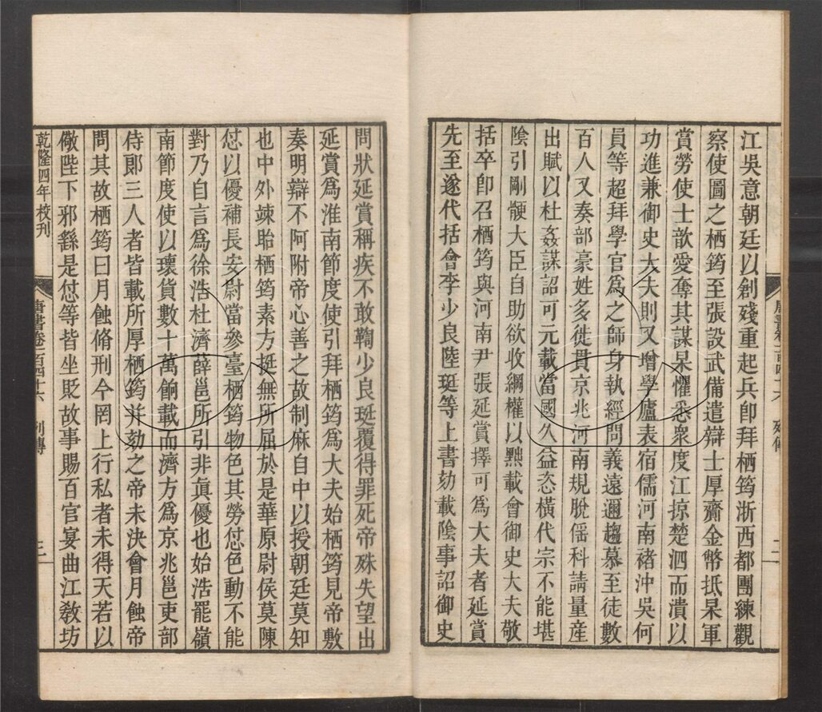 江吳意朝廷以創殘重起兵卽拜栖筠浙西都團練觀
察使圖之栖筠至張設武備遣辯士厚齎金幣抵杲軍
賞勞使士歆愛奪其謀杲懼悉衆度江掠楚泗而潰以
功進兼御史大夫則又增學廬表宿儒河南褚沖吳何
員等超拜學官爲之師身執經問義遠邇趨慕至徒數
百人又奏部豪姓多徙貫京兆河南規脫傜科請量產
出賦以杜姦謀詔可元載當國久益恣橫代宗不能堪
陰引剛鯁大臣自助欲收綱權以黜載會御史大夫敬
括卒卽召栖筠與河南尹張延賞擇可爲大夫者延賞
先至遂代括會李少良陸珽等上書劾載陰事詔御史
唐書卷一百四十六 列傳 二
問狀延賞稱疾不敢鞫少良珽覆得罪死帝殊失望出
延賞爲淮南節度使引拜栖筠爲大夫始栖筠見帝敷
奏明辯不阿附帝心善之故制麻自中以授朝廷莫知
也中外竦眙栖筠素方挺無所屈於是華原尉侯莫陳
怤以優補長安尉當參臺栖筠物色其勞怤色動不能
對乃自言爲徐浩杜濟薛邕所引非眞優也始浩罷嶺
南節度使以瓌貨數十萬餉載而濟方爲京兆邕吏部
侍郞三人者皆載所厚栖筠并劾之帝未決會月蝕帝
問其故栖筠曰月蝕脩刑今罔上行私者未得天若以
儆陛下邪繇是怤等皆坐貶故事賜百官宴曲江敎坊
乾隆四年校刊
唐書卷一百四十六 列傳 三